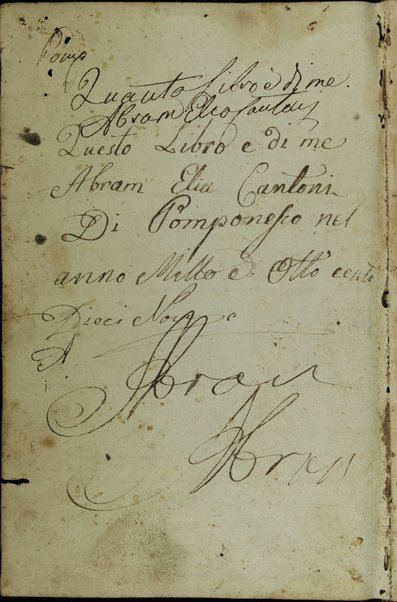 Pomp
Quanto Libro è di me.
Abram Elia Cantoni
Questo Libro e di me
Abram Elia Cantoni
Di Pomponesco nel
anno Mille e Otto cento
Dieci Nove
A
Abram
Abram